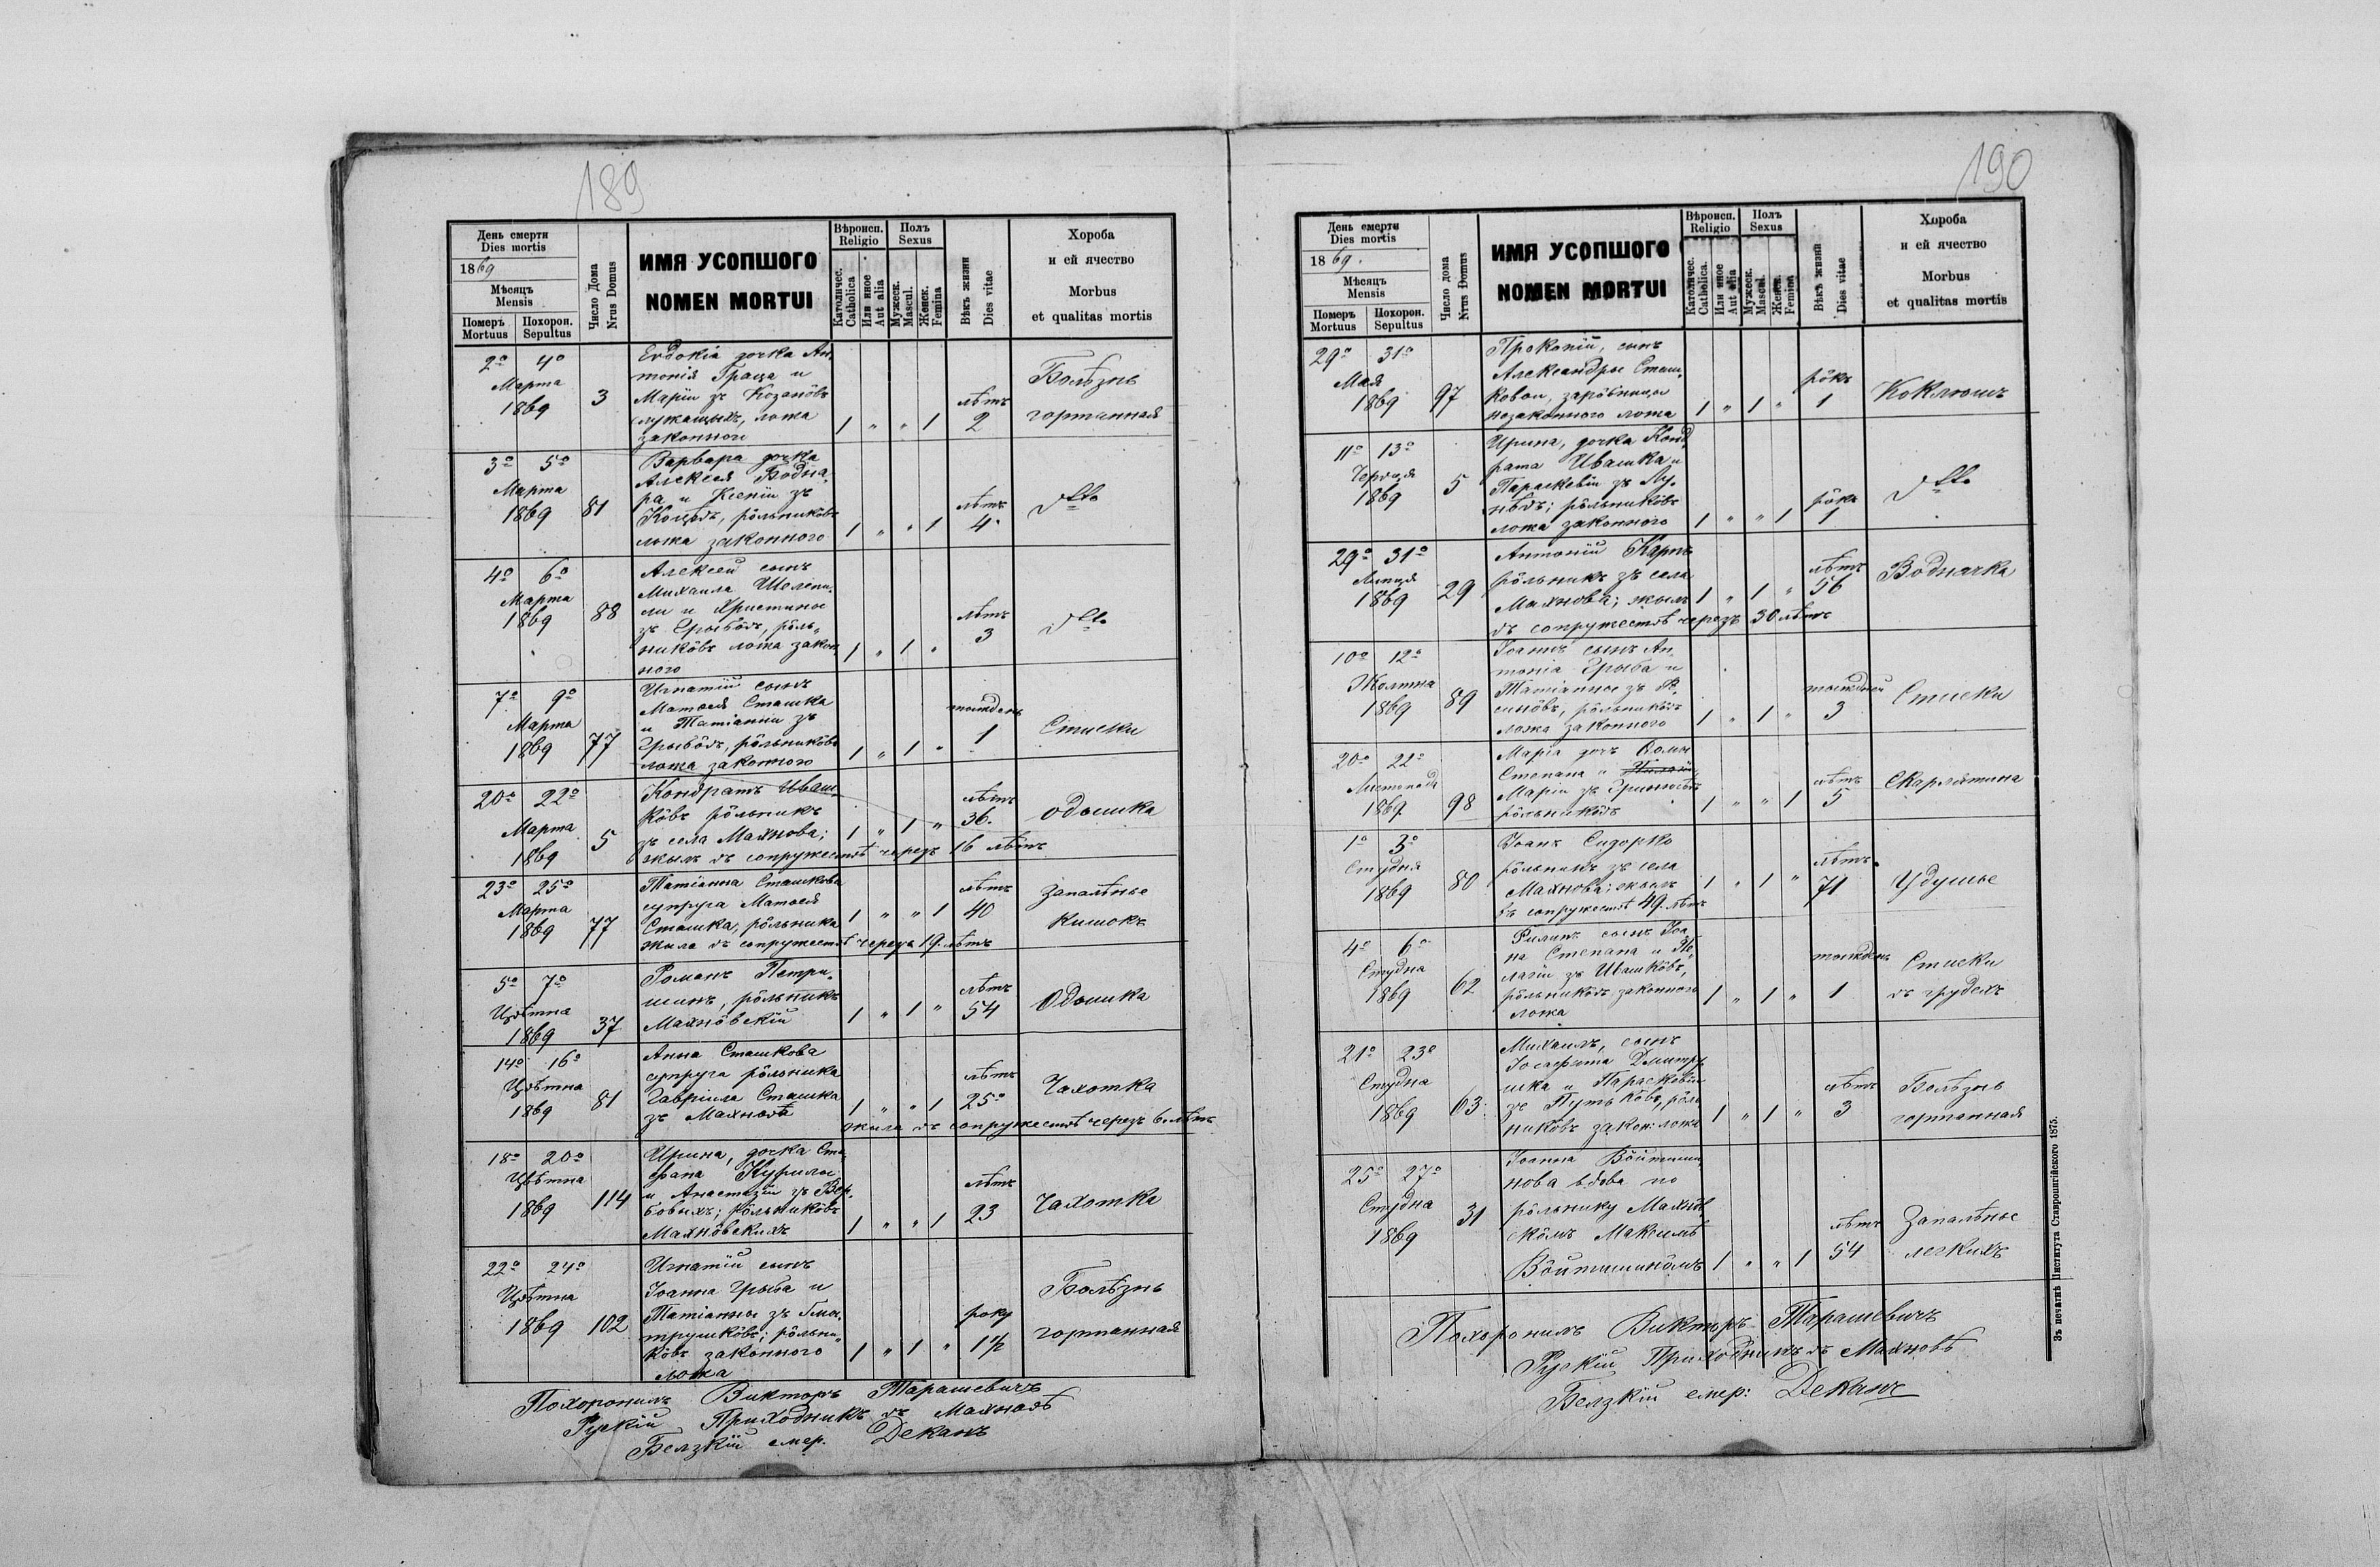 189
День смерти
Dies mortis
1869
Мѣсяцъ
Mensis
Померъ
Mortuus
Похорон.
Sepultus
Число Дома
Nrus Domus
ИМЯ УСОПШОГО
NOMEN MORTUI
Вѣроисп.
Religio
Католичес.
Catholica
Или иное
Aut alia
Полъ
Sexus
Мужеск.
Mascul.
Женск.
Femina
Вѣкъ жизни
Dies vitae
Хороба
и ей ячество
Morbus
et qualitas mortis
2º 4º
Марта
1869
3
Евдокія дочка Ан-
тонія Граца и
Маріи зъ Козаковъ
служащихъ, ложа
законного
1 " " 1
лѣтъ
2
Болѣзнь
гортанная
3º 5º
Марта
1869
81
Варвара дочка
Алексея Бодна-
ра и Ксеніи зъ
рôльникôвъ
ложа законного
1 " " 1
лѣтъ
4
dtto
4º 6º
Марта
1869
88
Алексей сынъ
Михаила
и Христины
зъ Грыбôвъ, рôль-
никôвъ ложа закон
ного
1 " 1 "
лѣтъ
3
dtto
7º 9º
Марта
1869
77
Игнатій сынъ
Матөея Сташка
и Татіанны зъ
Грыбôвъ, рôльникôвъ
ложа законного
1 " 1 "
тыждень
1
Стиски
20º 22º
Марта
1869
5
Кондратъ Иваш-
кôвъ рôльникъ
зъ села Махнова;
жылъ въ сопружествѣ черезъ 16 лѣтъ
1 " 1 "
лѣтъ
36.
Одышка
23º 25º
Марта
1869
77
Татіанна Сташкова
супруга Матөея
Сташка, рôльника
жила въ сопружествѣ черезъ 19. лѣтъ
1 " " 1
лѣтъ
40
Запалѣнье
Кишокъ
5º 7º
Цвѣтна
1869
37
Романъ Петри-
шинъ, рôльникъ
Махнôвскій
1 " 1 "
лѣтъ
54
Одышка
14º 16º
Цвѣтна
1869
81
Анна Сташкова
супруга рôльника
Гавріила Сташка
зъ Махнова
1 " " 1
лѣтъ
25
Чахотка
жила въ сопружествѣ черезъ 6 лѣтъ
18º 20º
Цвѣтна
1869
114
Ирина, дочка Сте-
фана Курилы
и Анастазіи зъ Вер-
бовыхъ; рôльникôвъ
Махнôвскихъ
1 " " 1
лѣтъ
23
Чахотка
22º 24º
Цвѣтна
1869
102
Игнатій сынъ
Іоанна Грыба и
Татіанны зъ
рôльни-
кôвъ законного
ложа
1 " 1 "
року
1½
Болѣзнь
гортанная
Похоронилъ Викторъ Тарашевичъ
Рускій Приходникъ въ Махновѣ
Белзкій емер. Деканъ
190
День смерти
Dies mortis
1869.
Мѣсяцъ
Mensis
Померъ
Mortuus
Похорон.
Sepultus
Число дома
Nrus Domus
ИМЯ УСОПШОГО
NOMEN MORTUI
Вѣроисп.
Religio
Католичес.
Catholica.
Или иное
Aut alia
Полъ
Sexus
Мужеск.
Mascul.
Женск.
Femina
Вѣкъ жизни
Dies vitae
Хороба
и ей ячество
Morbus
et qualitas mortis
29º 31º
Мая
1869
97
Прокопій, сынъ
Александры Сташ-
ковои, зарôбницы
незаконного ложа
1 " 1 "
рôкъ
1
Коклюшъ
11º 13º
Червця
1869
5
Ирина, дочка Конд
рата Ивашка и
Параскевіи зъ
рôльникôвъ
ложа законного
1 " " 1
рôкъ
1
dtto
29º 31º
Липця
1869
29
Антоній Карпъ
рôльникъ зъ села
Махнова; жылъ
въ сопружествѣ черезъ 30 лѣтъ
1 " 1 "
лѣтъ
56
Водначка
10º 12º
Жолтня
1869
89
Іоаннъ сынъ Ан-
тонія Грыба и
Татіанны зъ
рôльникôвъ
ложа законного
1 " 1 "
тыждней
3
Стиски
20º 22º
Листопада
1869
98
Марія
Степана и
Маріи зъ
рôльникôвъ
1 " " 1
лѣтъ
5
Скарлятина
1º 3º
Студня
1869
80
Иоанъ Сидорко
рôльникъ зъ села
Махнова; жылъ
въ сопружествѣ 49. лѣтъ
1 " 1 "
лѣтъ
71
Удушье
4º 6º
Студна
1869
62
Филипъ сынъ Іоа-
на Степана и Пе-
лагіи зъ Ивашкôвъ,
рôльникôвъ законного
ложа
1 " 1 "
тыждень
1
Стиски
въ грудехъ
21º 23º
Студна
1869
63.
Михаилъ, сынъ
Іосафата Дмитры
шка и Параскевіи
зъ Путькôвъ, рôль-
никôвъ закон: ложа
1 " 1 "
лѣтъ
3
Болѣзнь
гортанная
25º 27º
Студна
1869
31
Іоанна Вôйтиши-
нова вдова по
рôльнику Махнôв
скôмъ Максимѣ
Вôйтишинôмъ
1 " " 1
лѣтъ
54
Запалѣнье
легкихъ
Похоронилъ Викторъ Тарашевичъ
Рускій Приходникъ въ Махновѣ
Белзкій емер: Деканъ
Зъ печатнѣ Института Ставропигійского 1875.